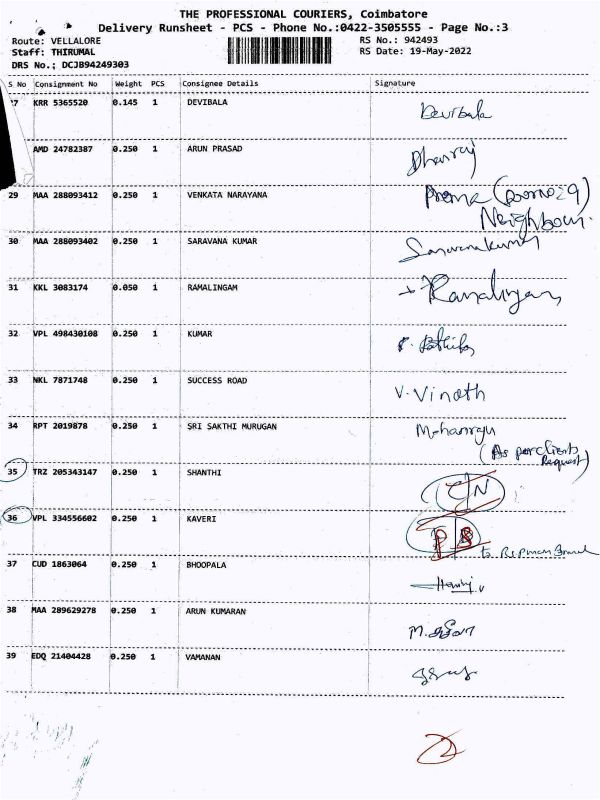 THE PROFESSIONAL COURIERS, Coimbatore
Delivery Runsheet - PCS - Phone No.:0422-3505555 - Page No.:3
Route: VELLALORE RS No.: 942493
Staff: THIRUMAL RS Date: 19-May-2022
DRS No.; DCJB94249303
S No Consignment No Weight PCS Consignee Details Signature
27 KRR 5365520 0.145 1 DEVIBALA Devibala
AMD 24782387 0.250 1 ARUN PRASAD Dhanraj
29 MAA 288093412 0.250 1 VENKATA NARAYANA Prema
Neighbour.
30 MAA 288093402 0.250 1 SARAVANA KUMAR Saravanakumar
31 KKL 3083174 0.050 1 RAMALINGAM Ramalingam
32 VPL 498430108 0.250 1 KUMAR
33 NKL 7871748 0.250 1 SUCCESS ROAD V. Vinoth
34 RPT 2019878 0.250 1 SRI SAKTHI MURUGAN Mohanraju
(As per Clients
Request)
35 TRZ 205343147 0.250 1 SHANTHI C/N
36 VPL 334556602 0.250 1 KAVERI
37 CUD 1863064 0.250 1 BHOOPALA
38 MAA 289629278 0.250 1 ARUN KUMARAN
39 EDQ 21404428 0.250 1 VAMANAN
2